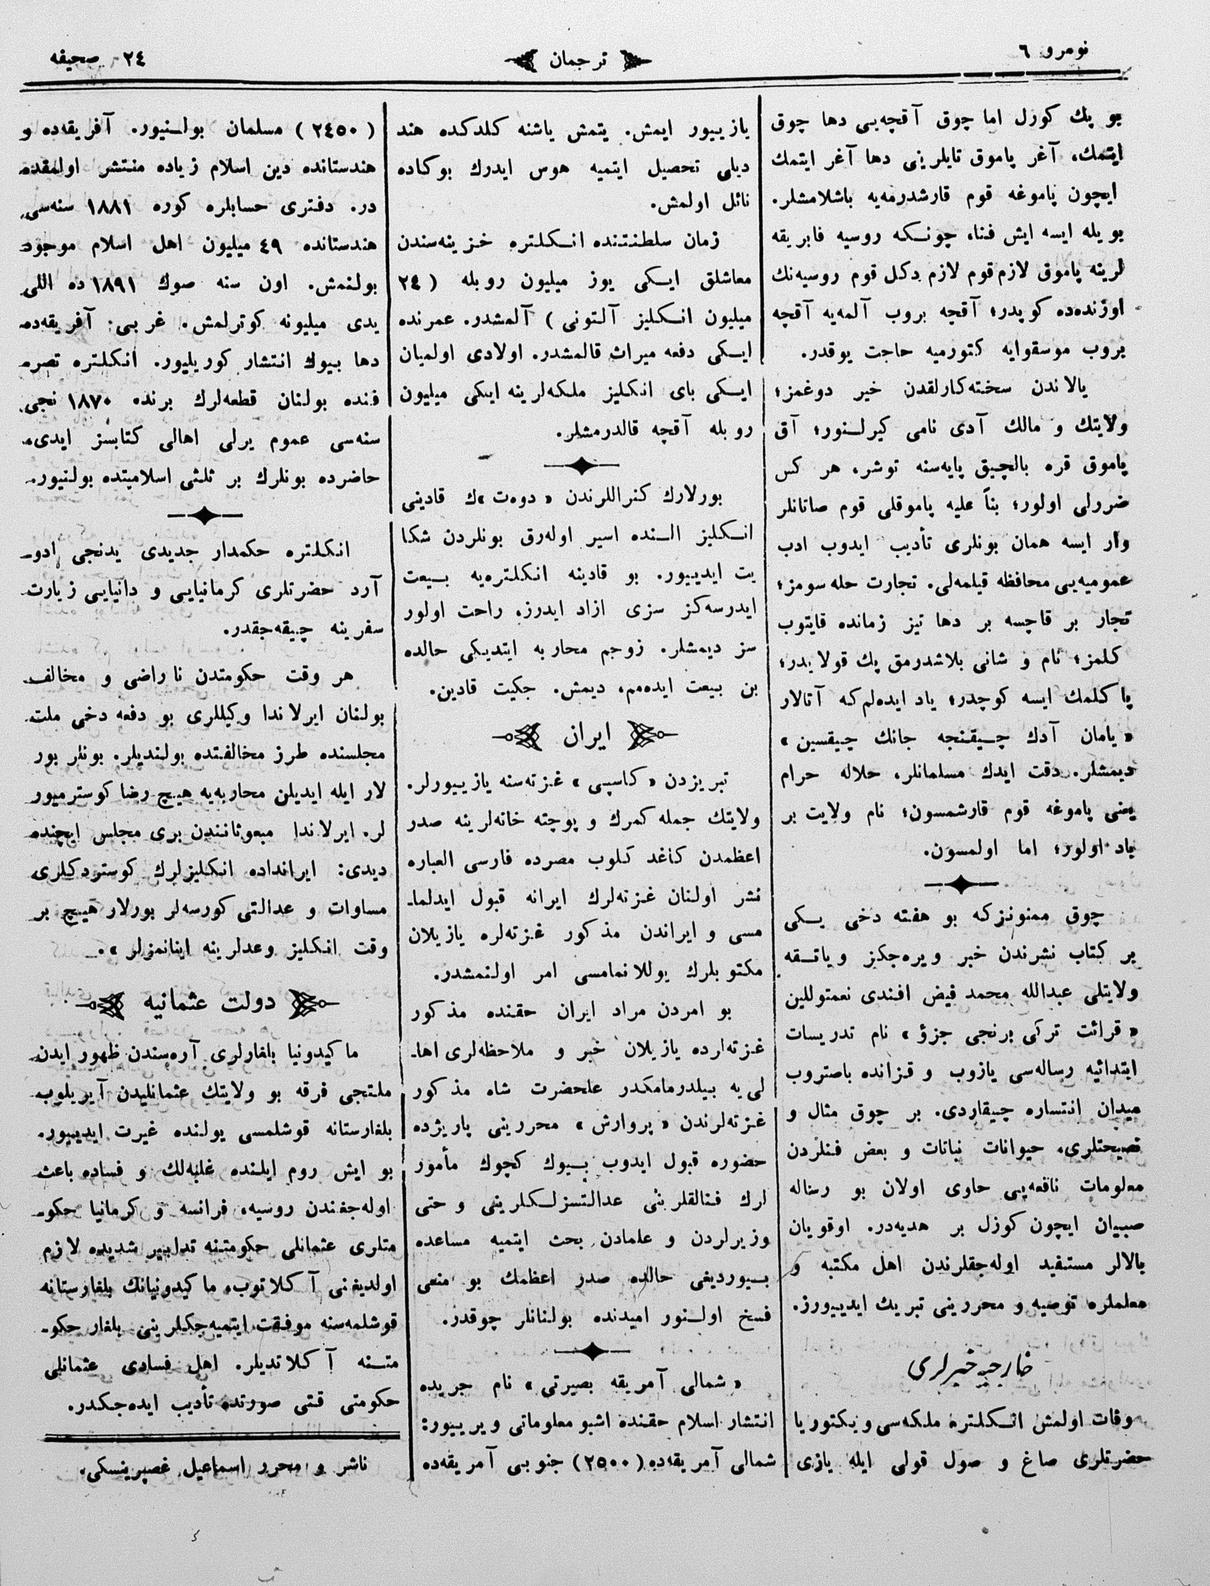 نومرو ٦
ترجمان
٢٤ صحيفه
بو پك كوزل اما چوق آقچه‌يى دها چوق
ايتمك، آغر پاموق تايلرينى دها آغر ايتمك
ايچون پاموغه قوم قارشدرمه‌يه باشلامشلر.
بويله ايسه ايش فنا، چونكه روسيه فابريقه
لرينه پاموق لازم قوم لازم دكل قوم روسيه‌نك
اوزنده‌ده كوپدر؛ آقچه بروب آلمه‌يه آقچه
بروب موسقوايه كتورميه حاجت يوقدر.
يالاندن سخته‌كارلقدن خير دوغمز؛
ولايتك و مالك آدى نامى كيرلنور؛ آق
پاموق قره بالچيق پايه‌سنه توشر، هر كس
ضررلى اولور؛ بناً عليه پاموقلى قوم صاتانلر
وار ايسه همان بونلرى تأديب ايدوب ادب
عموميه‌يى محافظه قيلمه‌لى. تجارت حله سومز؛
تجار بر قاچسه بر دها تيز زمانده قايتوب
كلمز؛ نام و شانى بلاشدرمق پك قولايدر؛
پاكلمك ايسه كوچدر؛ ياد ايده‌لم كه آتالار
« يامان آدك چيقنجه جانك چيقسين »
ديمشلر. دقت ايدك مسلمانلر، حلاله حرام
يعنى پاموغه قوم قارشمسون؛ نام ولايت بر
باد اولور؛ اما اولمسون.
چوق ممنونزكه بو هفته دخى يكى
بر كتاب نشرندن خبر ويره‌جكز وياتقه
ولايتلى عبدالله محمد فيض افندى نعمتوللين
« قرائت تركى برنجى جزؤ » نام تدريسات
ابتدائيه رساله‌سى يازوب و قزانده باصتروب
ميدان انتشاره چيقاردى. بر چوق مثال و
نصيحتلرى، حيوانات نباتات و بعض فنلردن
معلومات نافعه‌يى حاوى اولان بو رساله
صبيان ايچون كوزل بر هديه‌در. اوقويان
بالالر مستفيد اوله‌جقلرندن اهل مكتبه و
معلملره توصيه و محررينى تبريك ايدييورز.
خارجيه خبرلرى
وفات اولمش انكلتره ملكه‌سى ويكتوريا
حضرتلرى صاغ و صول قولى ايله يازى
يازييور ايمش. يتمش ياشنه كلدكده هند
ديلى تحصيل ايتميه هوس ايدرك بوكاده
نائل اولمش.
زمان سلطنتنده انكلتره خزينه‌سندن
معاشلق ايكى يوز ميليون روبله ( ٢٤
ميليون انكليز آلتونى ) آلمشدر. عمرنده
ايكى دفعه ميراث قالمشدر. اولادى اولميان
ايكى باى انكليز ملكه‌لرينه ايكى ميليون
روبله آقچه قالدرمشلر.
بورلارك كنراللرندن « دوه‌ت »ك قادينى
انكليز النده اسير اوله‌رق بونلردن شكا
يت ايدييور. بو قادينه انكلتره‌يه بيعت
ايدرسه‌كز سزى ازاد ايدرز، راحت اولور
سز ديمشلر. زوجم محاربه ايتديكى حالده
بن بيعت ايده‌مم، ديمش. جكيت قادين.
ايران
تبريزدن « كاسپى » غزته‌سنه يازييورلر.
ولايتك جمله كمرك و پوچته خانه‌لرينه صدر
اعظمدن كاغد كلوب مصرده فارسى العباره
نشر اولنان غزته‌لرك ايرانه قبول ايدلما-
مسى و ايراندن مذكور غزته‌لره يازيلان
مكتوبلرك يوللانمامسى امر اولنمشدر.
بو امردن مراد ايران حقنده مذكور
غزته‌لرده يازيلان خبر و ملاحظه‌لرى اها-
لى يه بيلدرمامكدر علحضرت شاه مذكور
غزته‌لرندن « پروارش » محررينى پاريژده
حضوره قبول ايدوب بيوك كچوك مأمور
لرك فنالقلرينى عدالتسزلكلرينى و حتى
وزيرلردن و علمادن بحث ايتميه مساعده
بيورديغى حالده صدر اعظمك بو منعى
فسخ اولنور اميدنده بولنانلر چوقدر.
« شمالى آمريقه بصيرتى » نام جريده
انتشار اسلام حقنده اشبو معلوماتى ويرييور:
شمالى آمريقه‌ده (٢٥٠٠) جنوبى آمريقه‌ده
( ٢٤٥٠ ) مسلمان بولنيور. آفريقه‌ده و
هندستانده دين اسلام زياده منتشر اولمقده
در. دفترى حسابلره كوره ١٨٨١ سنه‌سى
هندستانده ٤٩ ميليون اهل اسلام موجود
بولنمش. اون سنه صوك ١٨٩١ ده اللى
يدى ميليونه كوترلمش. غربى آفريقه‌ده
دها بيوك انتشار كوريليور. انكلتره تصر
فنده بولنان قطعه‌لرك برنده ١٨٧٠ نجى
سنه‌سى عموم يرلى اهالى كتابسز ايدى،
حاضرده بونلرك بر ثلثى اسلاميتده بولنيور.
انكلتره حكمدار جديدى يدنجى ادو-
آرد حضرتلرى كرمانيايى و دانيايى زيارت
سفرينه چيقه‌جقدر.
هر وقت حكومتدن ناراضى و مخالف
بولنان ايرلاندا وكيللرى بو دفعه دخى ملت
مجلسنده طرز مخالفتده بولنديلر. بونلر بور
لار ايله ايديلن محاربه‌يه هيچ رضا كوسترميور
لر. ايرلاندا مبعوثانندن برى مجلس ايچنده
ديدى: ايرانداده انكليزلرك كوستردكلرى
مساوات و عدالتى كورسه‌لر بورلار هيچ بر
وقت انكليز وعدلرينه اينانمزلر ».
دولت عثمانيه
ماكيدونيا بلغارلرى آره‌سندن ظهور ايدن
ملتجى فرقه بو ولايتك عثمانليدن آيريلوب
بلغارستانه قوشلمسى يولنده غيرت ايدييور.
بو ايش روم ايلنده غلبه‌لك و فساده باعث
اوله‌جغندن روسيه، فرانسه و كرمانيا حكو-
متلرى عثمانلى حكومتنه تدابير شديده لازم
اولديغنى آكلاتوب، ماكيدونيانك بلغارستانه
قوشلمه‌سنه موفقت ايتميه‌جكلرينى بلغار حكو-
متنه آكلاتديلر. اهل فسادى عثمانلى
حكومتى قتى صورتده تأديب ايده‌جكدر.
ناشر و محرر اسماعيل غصپرينسكى.